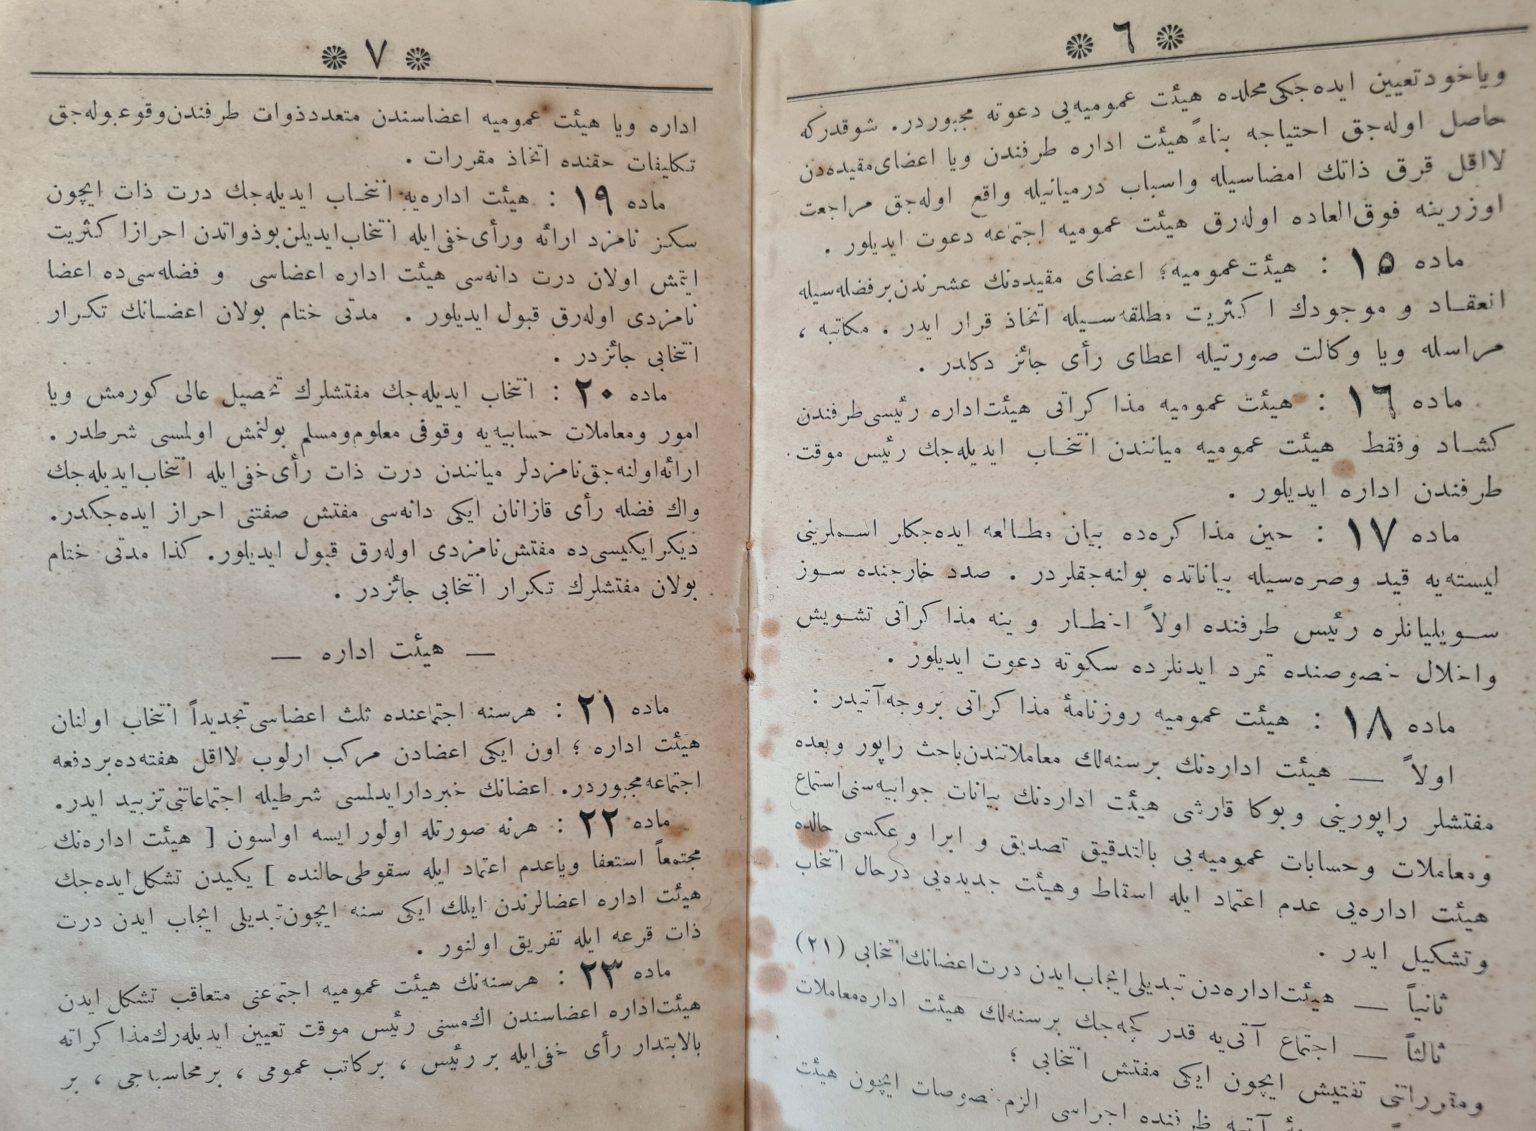 ٦
ویاخود تعیین ایده‌جكی محلده هیئت عمومیه‌یی دعوته مجبوردر. شوقدركه
حاصل اوله‌جق احتیاجه بناءً هیئت اداره طرفندن ویا اعضای مقیده‌دن
لااقل قرق ذاتك امضاسیله واسباب درمیانیله واقع اوله‌جق مراجعت
اوزرینه فوق‌العاده اوله‌رق هیئت عمومیه اجتماعه دعوت ایدیلور .
ماده ١٥ : هیئت عمومیه؛ اعضای مقیده‌نك عشرندن برفضله‌سیله
انعقاد و موجودك اكثریت مطلقه‌سیله اتخاذ قرار ایدر . مكاتبه ،
مراسله ویا وكالت صورتیله اعطای رأی جائز دكلدر .
ماده ١٦ : هیئت عمومیه مذاكراتی هیئت‌اداره رئیسی طرفندن
كشاد وفقط هیئت عمومیه میانندن انتخاب ایدیله‌جك رئیس موقت
طرفندن اداره ایدیلور .
ماده ١٧ : حین مذاكره‌ده بیان مطالعه ایده‌جكلر اسملرینی
لیسته‌یه قید وصره‌سیله بیاناتده بولنه‌جقلردر . صدد خارجنده سوز
سویلیانلره رئیس طرفنده اولاً اخطار و ینه مذاكراتی تشویش
واخلال خصوصنده تمرد ایدنلرده سكوته دعوت ایدیلور .
ماده ١٨ : هیئت عمومیه روزنامهٔ مذاكراتی بروجه‌آتیدر :
اولاً — هیئت اداره‌نك برسنه‌لك معاملاتندن‌باحث راپور وبعده
مفتشلر راپورینی وبوكا قارشی هیئت اداره‌نك بیانات جوابیه‌سنی استماع
ومعاملات وحسابات عمومیه‌یی بالتدقیق تصدیق و ابرا وعكسی حالده
هیئت اداره‌یی عدم اعتماد ایله اسقاط وهیئت جدیده‌یی درحال انتخاب
وتشكیل ایدر .
ثانیاً — هیئت‌اداره‌دن تبدیلی‌ایجاب‌ایدن درت‌اعضانك‌انتخابی (٢١)
ثالثاً — اجتماع آتی‌یه قدر كچه‌جك برسنه‌لك هیئت اداره‌معاملات
ومقرراتنی تفتیش ایچون ایكی مفتش انتخابی ؛
اجراسی الزم خصوصات ایچون هیئت
٧
اداره ویا هیئت عمومیه اعضاسندن متعددذوات طرفندن‌وقوعبوله‌جق
تكلیفات حقنده اتخاذ مقررات .
ماده ١٩ : هیئت اداره‌یه انتخاب ایدیله‌جك درت ذات ایچون
سكز نامزد ارائه ورأی خفی‌ایله انتخاب‌ایدیلن‌بوذواتدن احرازاكثریت
ایتمش اولان درت دانه‌سی هیئت اداره اعضاسی و فضله‌سی‌ده اعضا
نامزدی اوله‌رق قبول ایدیلور . مدتی ختام بولان اعضانك تكرار
انتخابی جائزدر .
ماده ٢٠ : انتخاب ایدیله‌جك مفتشلرك تحصیل عالی كورمش ویا
امور ومعاملات حسابیه‌یه وقوفی معلوم‌ومسلم بولنمش اولمسی شرطدر .
ارائه‌اولنه‌جق‌نامزدلر میانندن درت ذات رأی‌خفی‌ایله انتخاب‌ایدیله‌جك
واك فضله رأی قازانان ایكی دانه‌سی مفتش صفتنی احراز ایده‌جكدر.
دیكرایكیسی‌ده مفتش‌نامزدی اوله‌رق قبول ایدیلور. كذا مدتی ختام
بولان مفتشلرك تكرار انتخابی جائزدر .
— هیئت اداره —
ماده ٢١ : هرسنه اجتماعنده ثلث اعضاسی‌تجدیداً انتخاب اولنان
هیئت اداره ؛ اون ایكی اعضادن مركب ارلوب لااقل هفته‌ده‌بردفعه
اجتماعه‌مجبوردر. اعضانك خبردارایدلمسی شرطیله اجتماعاتنی‌تزیید ایدر.
ماده ٢٢ : هرنه صورتله اولور ایسه اولسون [ هیئت اداره‌نك
مجتمعاً استعفا ویاعدم اعتماد ایله سقوطی‌حالنده ] یكیدن تشكل‌ایده‌جك
هیئت اداره اعضالرندن ایلك ایكی سنه ایچون‌تبدیلی ایجاب ایدن درت
ذات قرعه ایله تفریق اولنور .
ماده ٢٣ : هرسنه‌نك هیئت عمومیه اجتماعنی متعاقب تشكل ایدن
هیئت‌اداره اعضاسندن اك‌مسنی رئیس موقت تعیین ایدیله‌رك‌مذاكراته
بالابتدار رأی خفی‌ایله بر رئیس ، بركاتب عمومی ، برمحاسبه‌جی ، بر